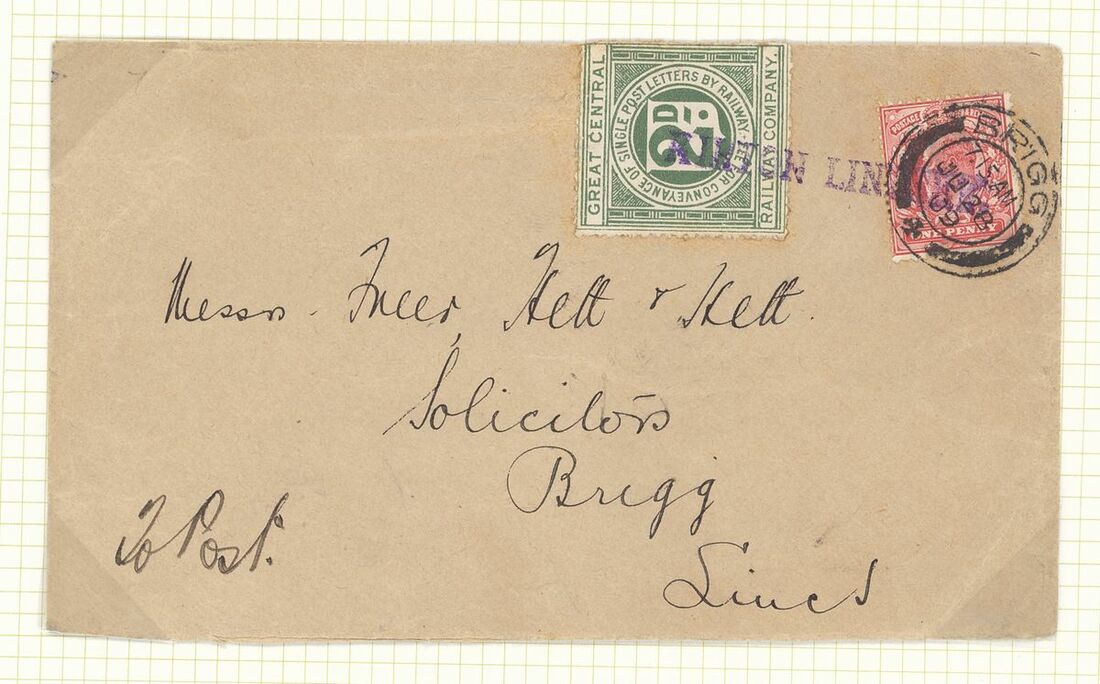 GREAT CENTRAL
RAILWAY COMPANY.
FEE FOR CONVEYANCE OF SINGLE POST LETTERS BY RAILWAY
2D
LIN
POSTAGE
ONE PENNY
BRIGG
715AM
28
09
Messrs. Freer, Hett & Hett.
Solicitors
Brigg
Lincs
To Post.